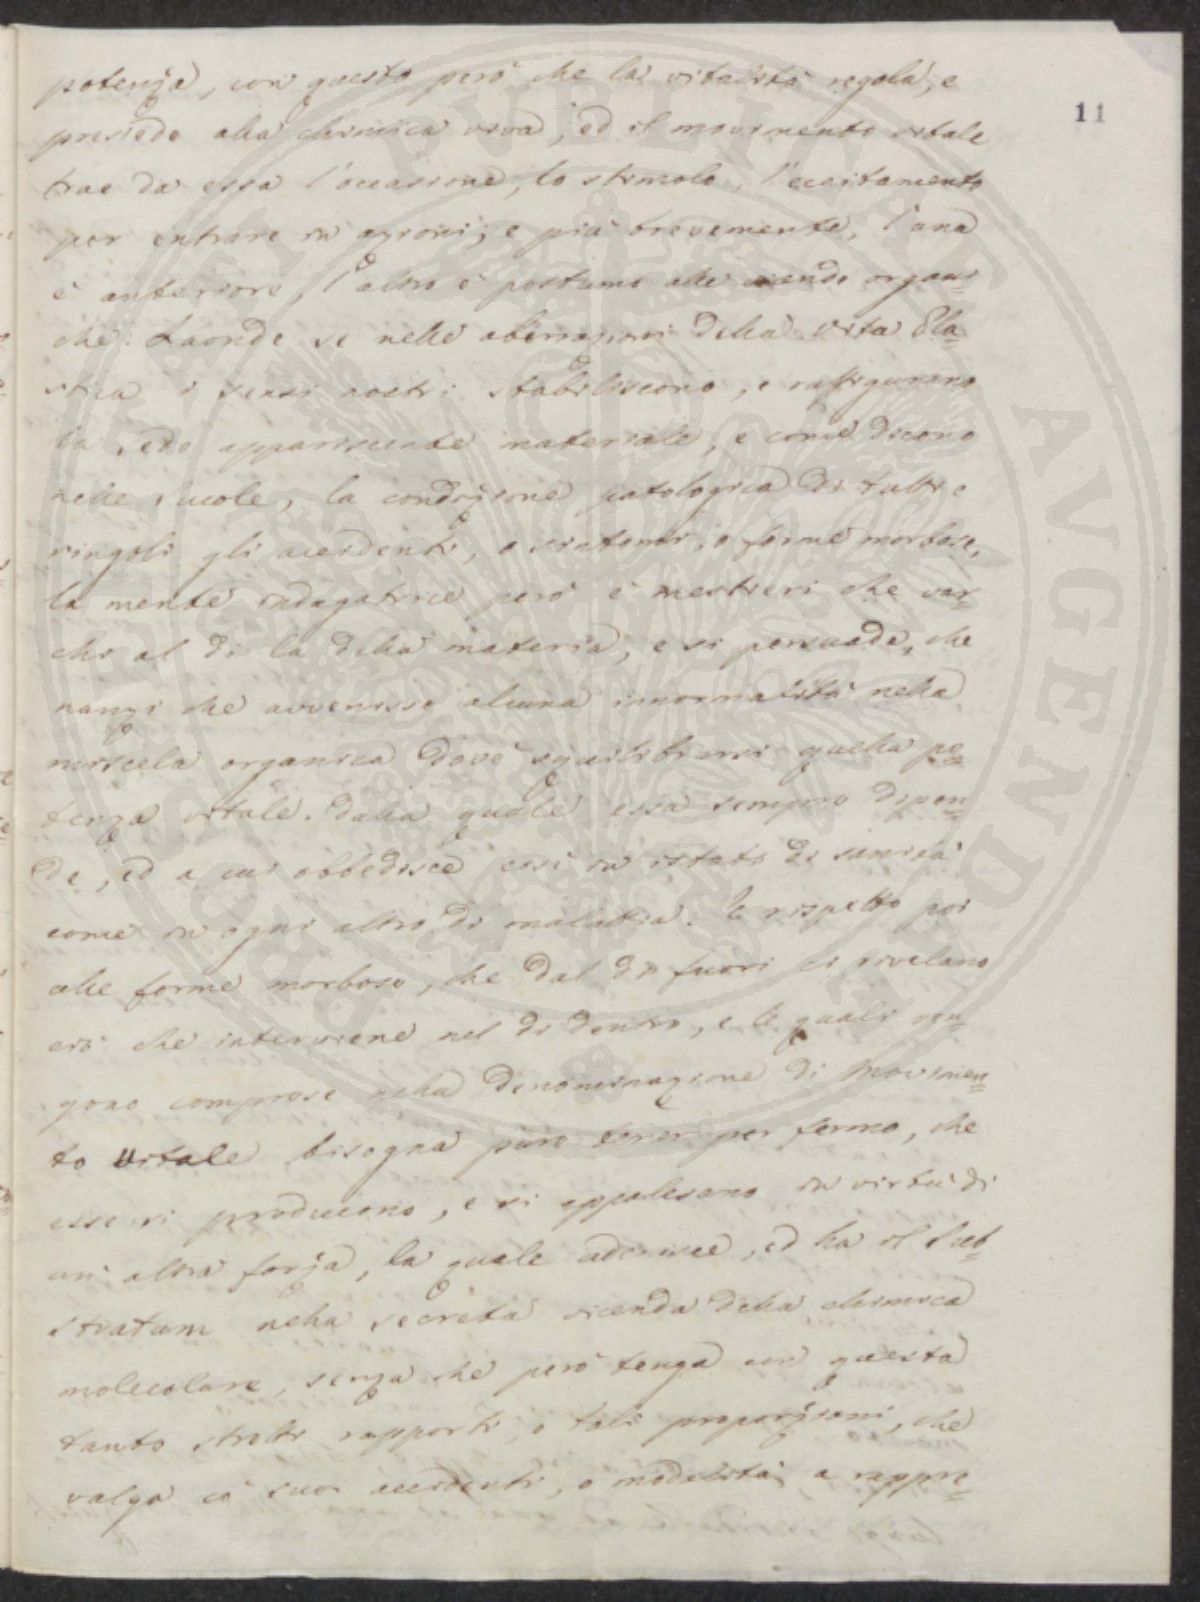 11
potenza, con questo però che la vitalità regola, e
presiede alla chimica viva, ed il movimento vitale
trae da essa l'occasione, lo stimolo, l'eccitamento
per entrare in azioni; e più brevemente, l'una
è anteriore, l'altro è postumo alle vicende organi=
che. Laonde se nelle aberrazioni della vita Pla=
stica i sensi nostri stabiliscono, e raffigurano
la sede appariscente materiale, e come dicono
nelle Scuole, la condizione patologica di tutti e
singoli gli accidenti, o sintomi, o forme morbose,
la mente indagatrice però è mestieri che var=
chi al di là della materia, e si persuada, che
nanzi che avvenisse alcuna innormalità nella
miscela organica dovè squilibrarsi quella po=
tenza vitale. dalla quale essa sempre dipen=
de, ed a cui obbedisce così in istato di sanità
come in ogni altro di malattia. E rispetto poi
alle forme morbose, che dal di fuori ci rivelano
ciò che interviene nel di dentro, e le quali ven=
gono comprese nella denominazione di Movimen=
to Vitale bisogna pure tener per fermo, che
esse si producono, e si appalesano in virtù di
un' altra forza, la quale aderisce, ed ha il Sub=
stratum nella secreta vicenda della chimica
molecolare, senza che però tenga con questa
tanto stretti rapporti o tali proporzioni, che
valga co' suoi accidenti, o modalità, a rappre=
PVBLICAE AVGENDAE